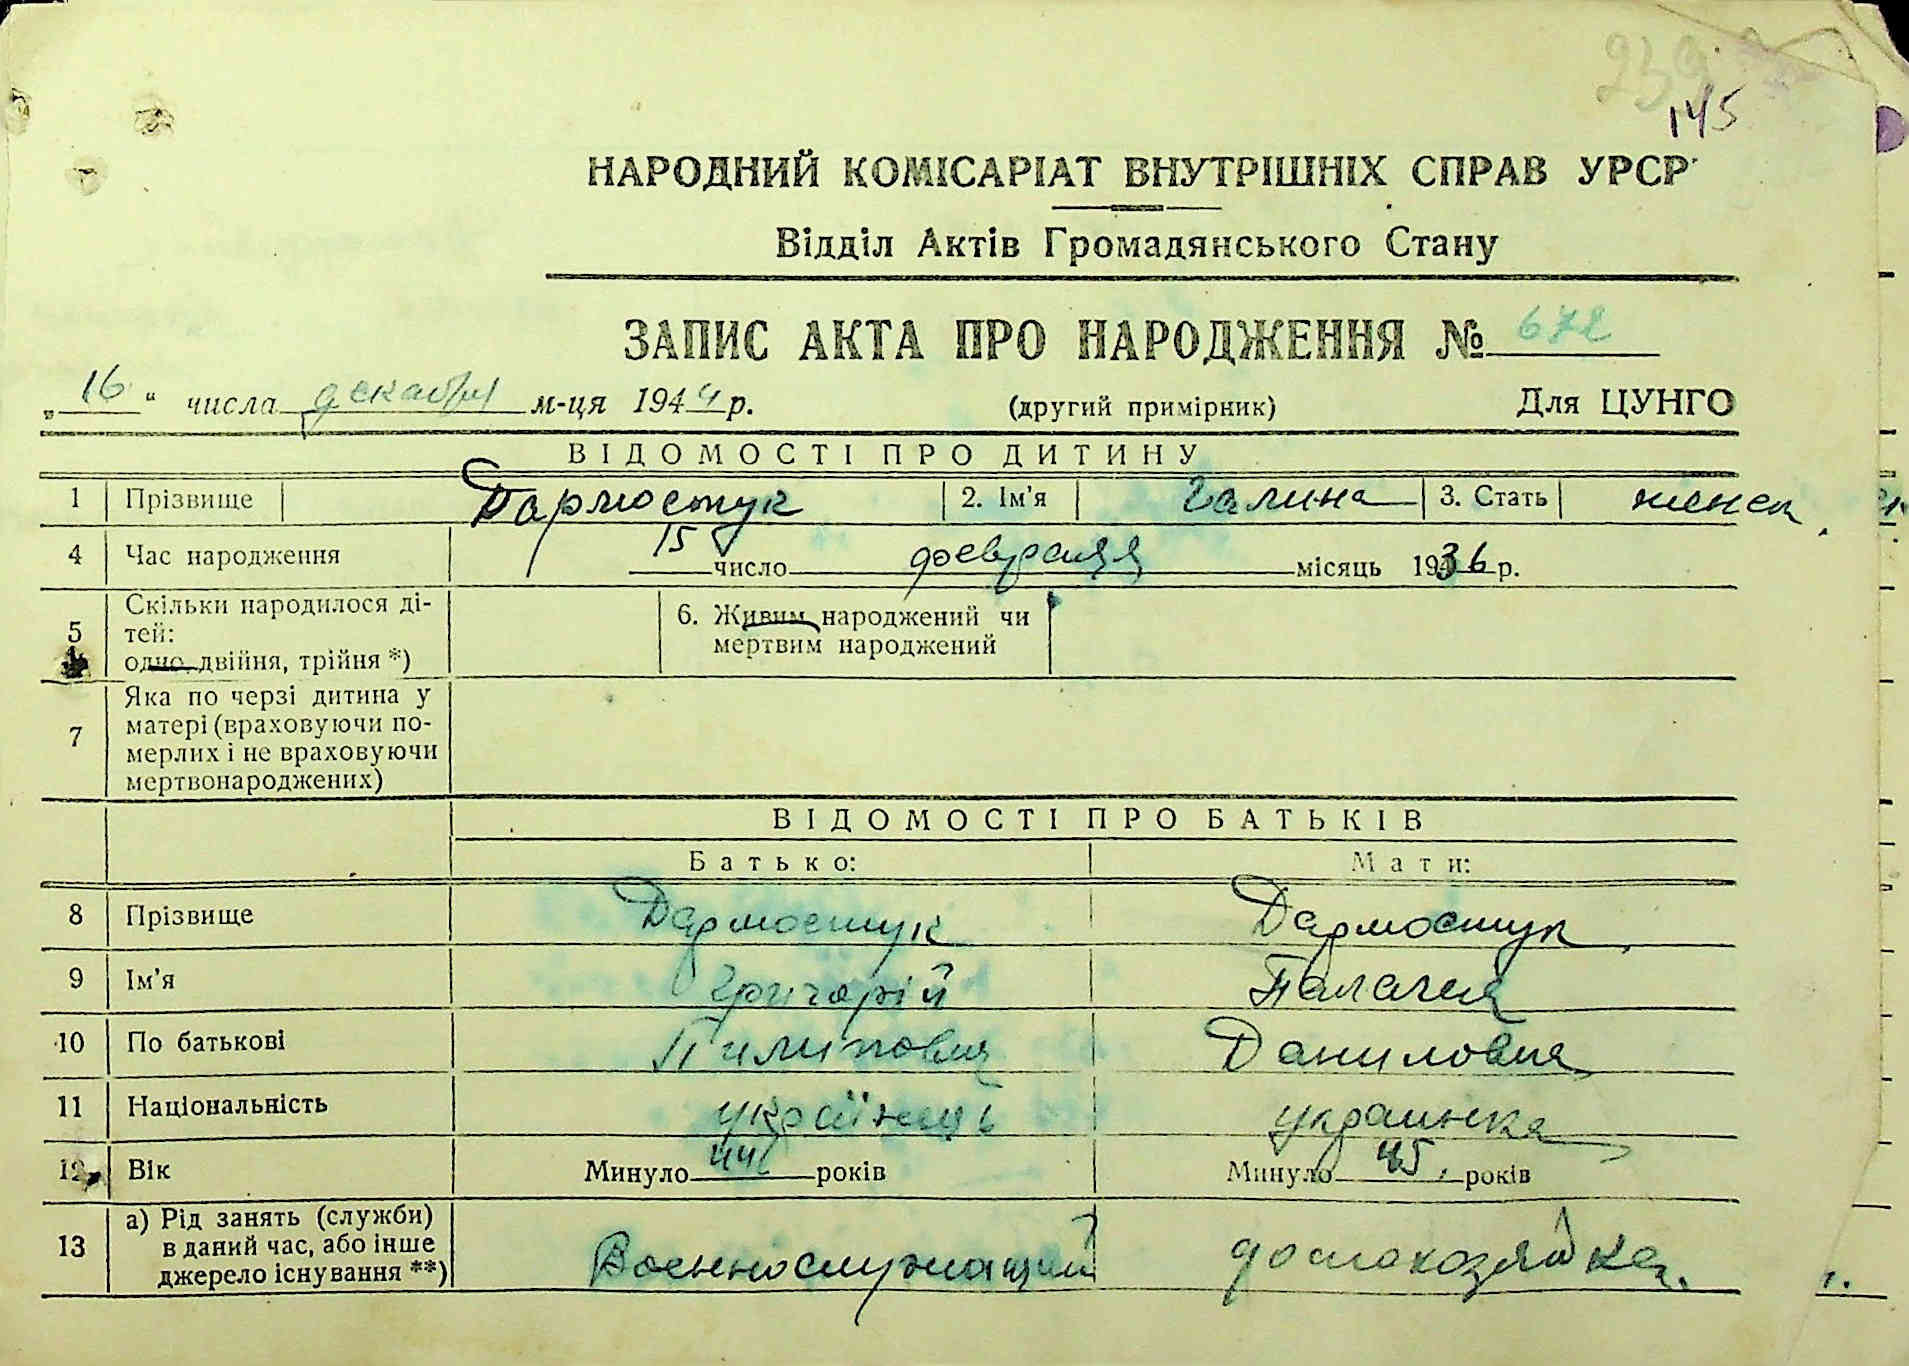 239
145
НАРОДНИЙ КОМІСАРІАТ ВНУТРІШНІХ СПРАВ УРСР
Відділ Актів Громадянського Стану
ЗАПИС АКТА ПРО НАРОДЖЕННЯ № 672
„16“ числа декабря м-ця 1944 р. (другий примірник) Для ЦУНГО
ВІДОМОСТІ ПРО ДИТИНУ
1 Прізвище Дармостук 2. Ім'я Галина 3. Стать женск
4 Час народження 15 число февраля місяць 1936 р.
5 Скільки народилося ді-
тей:
одно, двійня, трійня *)
6. Живим народжений чи
мертвим народжений
7 Яка по черзі дитина у
матері (враховуючи по-
мерлих і не враховуючи
мертвонароджених)
ВІДОМОСТІ ПРО БАТЬКІВ
Батько: Мати:
8 Прізвище Дармостук Дармостук
9 Ім'я Григорій Палагея
10 По батькові Пилипович Даниловна
11 Національність українець украинка
12 Вік Минуло 44 років Минуло 45 років
13 а) Рід занять (служби)
в даний час, або інше
джерело існування **)
Военнослужащий домохозяйка.